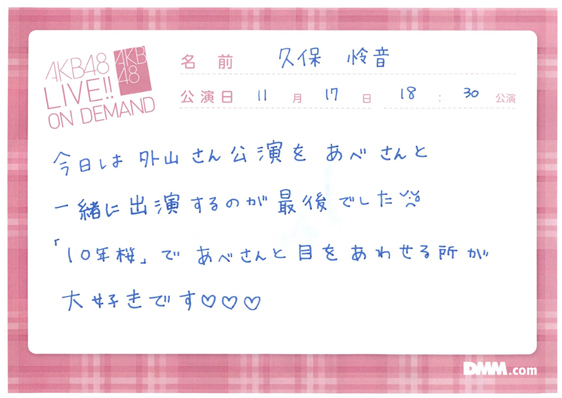 AKB48
LIVE!!
ON DEMAND
AKB
48
名前 久保 怜音
公演日 11 月 17 日 18 : 30 公演
今日は 外山さん公演を あべさんと
一緒に出演するのが最後でした
「10年桜」で あべさんと 目をあわせる所が
大好きです♡♡♡
DMM.com